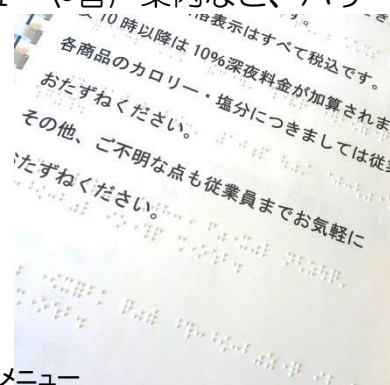 案内など、
格表示はすべて税込です。
10時以降は10%深夜料金が加算されま
各商品のカロリー・塩分につきましては従業
おたずねください。
その他、ご不明な点も従業員までお気軽に
おたずねください。
メニュー